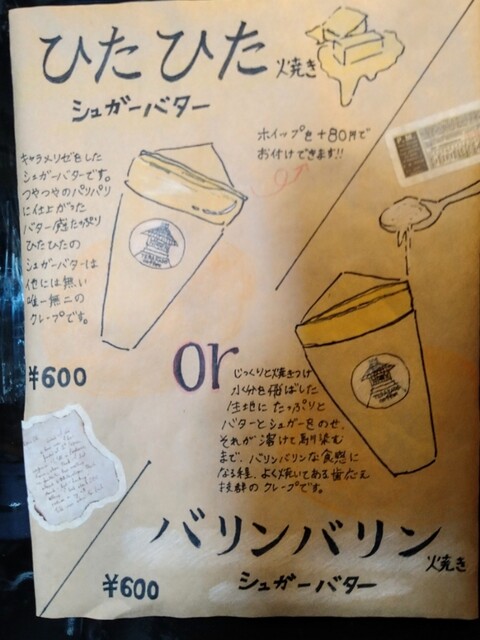 ひたひた焼き
シュガーバター
ホイップを+80円で
お付けできます!!
キャラメリゼをした
シュガーバターです。
つやつやのパリパリ
に仕上がった
バター感たっぷり
ひたひたの
シュガーバターは
他には無い
唯一無二の
クレープです。
¥600
or
じっくりと焼きつけ
水分を飛ばした
生地にたっぷりと
バターとシュガーをのせ、
それが溶けて馴染む
まで、バリンバリンな食感に
なる程、よく焼いてある歯応え
抜群のクレープです。
バリンバリン焼き
シュガーバター
¥600